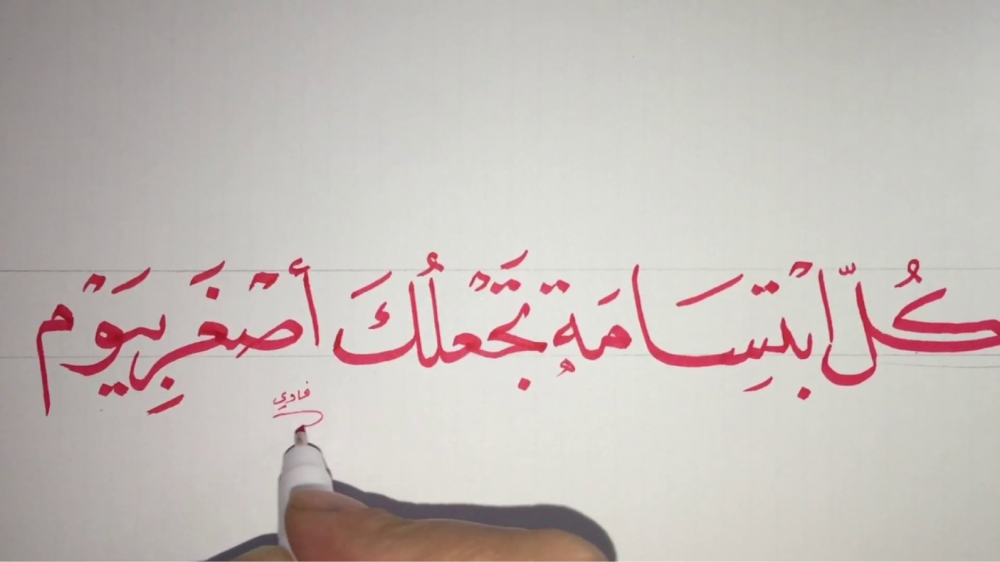 كُلّ ابْتِسَامَةٍ تَجْعَلُكَ أصْغَر بِيَوْم
فادي